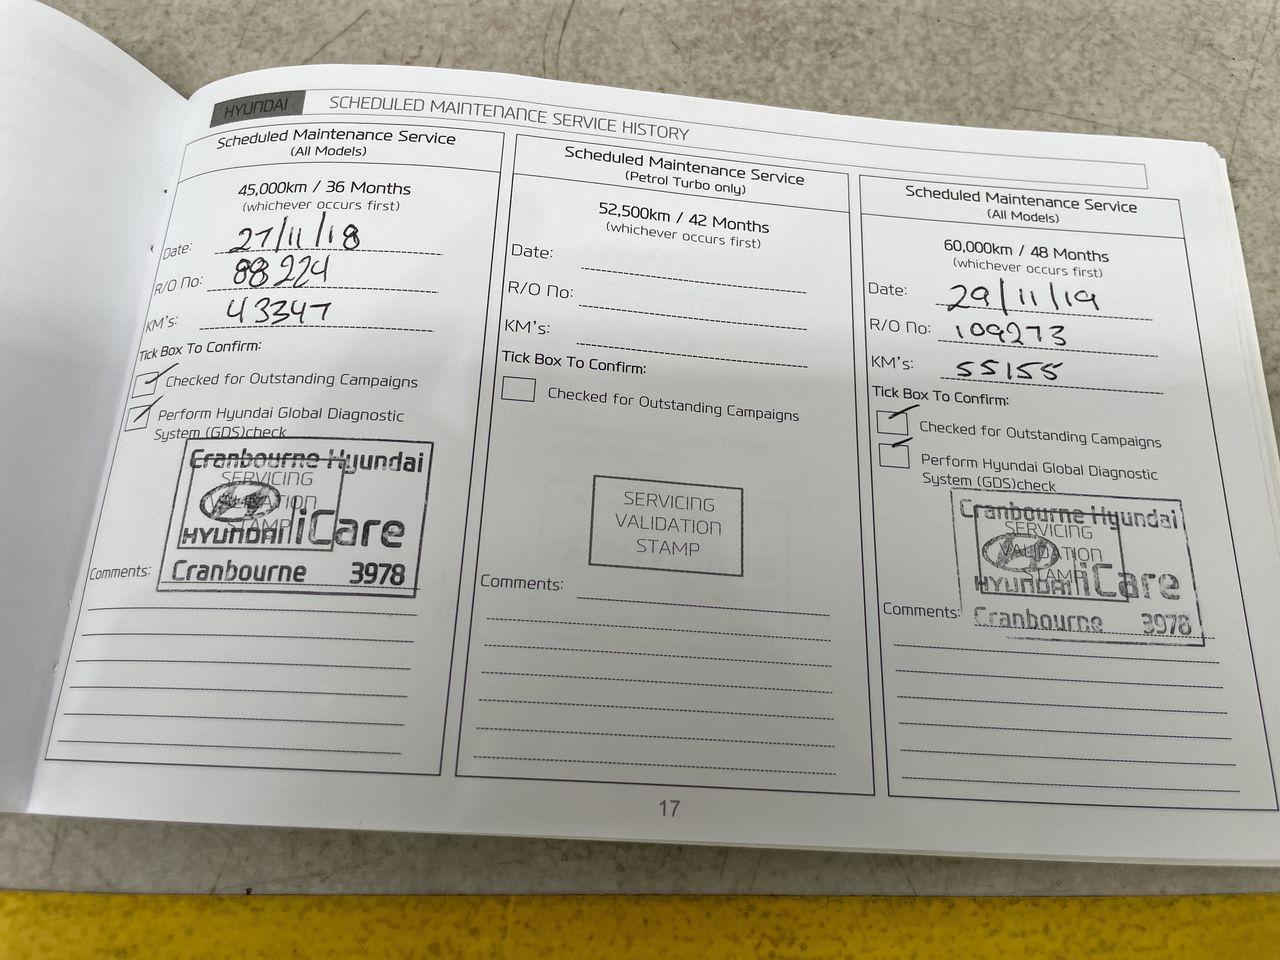 HYUNDAI
SCHEDULED MAINTENANCE SERVICE HISTORY
Scheduled Maintenance Service
(All Models)
45,000km / 36 Months
(whichever occurs first)
Date: 27/11/18
R/O No: 88224
KM's: 43347
Tick Box To Confirm:
Checked for Outstanding Campaigns
Perform Hyundai Global Diagnostic
System (GDS)check
Cranbourne Hyundai
SERVICING
VALIDATION
STAMP
HYUNDAI iCare
Cranbourne 3978
Comments:
Scheduled Maintenance Service
(Petrol Turbo only)
52,500km / 42 Months
(whichever occurs first)
Date:
R/O No:
KM's:
Tick Box To Confirm:
Checked for Outstanding Campaigns
SERVICING
VALIDATION
STAMP
Comments:
Scheduled Maintenance Service
(All Models)
60,000km / 48 Months
(whichever occurs first)
Date: 29/11/19
R/O No: 109273
KM's: 55155
Tick Box To Confirm:
Checked for Outstanding Campaigns
Perform Hyundai Global Diagnostic
System (GDS)check
Cranbourne Hyundai
SERVICING
VALIDATION
STAMP
HYUNDAI iCare
Cranbourne 3978
Comments:
17